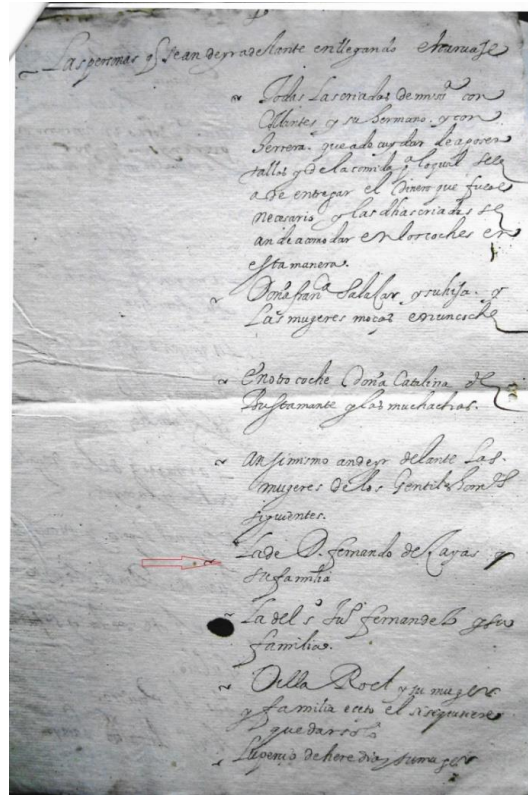 Las personas q̃ se an de yr adelante en llegando el caruaje
Todas las criadas de mi s.ª con
Collantes y su hermano. y con
herrera. que a de cuydar de aposen
tallas y de la comida a loqual se le
a de entregar el dinero que fuere
necesario y las dhas criadas se
an de acomodar en los coches en
esta manera.
Doña fran.ca Salaçar y su hija. y
Las mugeres moças en un coche
En otro coche Doña Catalina de
Bustamante y las muchachas.
Ansimismo an de yr delante las
mugeres de los Gentiles hom.es
siguientes.
La de D. fernando de Cayas y
su familia
La del s.r Ju.º fernandez y su
familia.
Della Roel y su muger
y familia eceto el
quedar
Eugenio de heredia y su muger